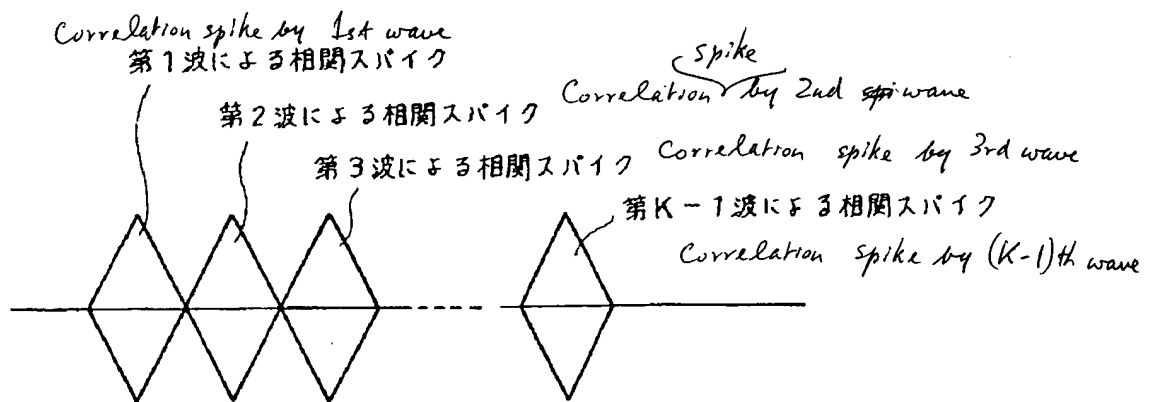 Correlation spike by 1st wave
第1波による相関スパイク
spike
Correlation by 2nd wave
第2波による相関スパイク
第3波による相関スパイク Correlation spike by 3rd wave
第K-1波による相関スパイク
Correlation spike by (K-1)th wave